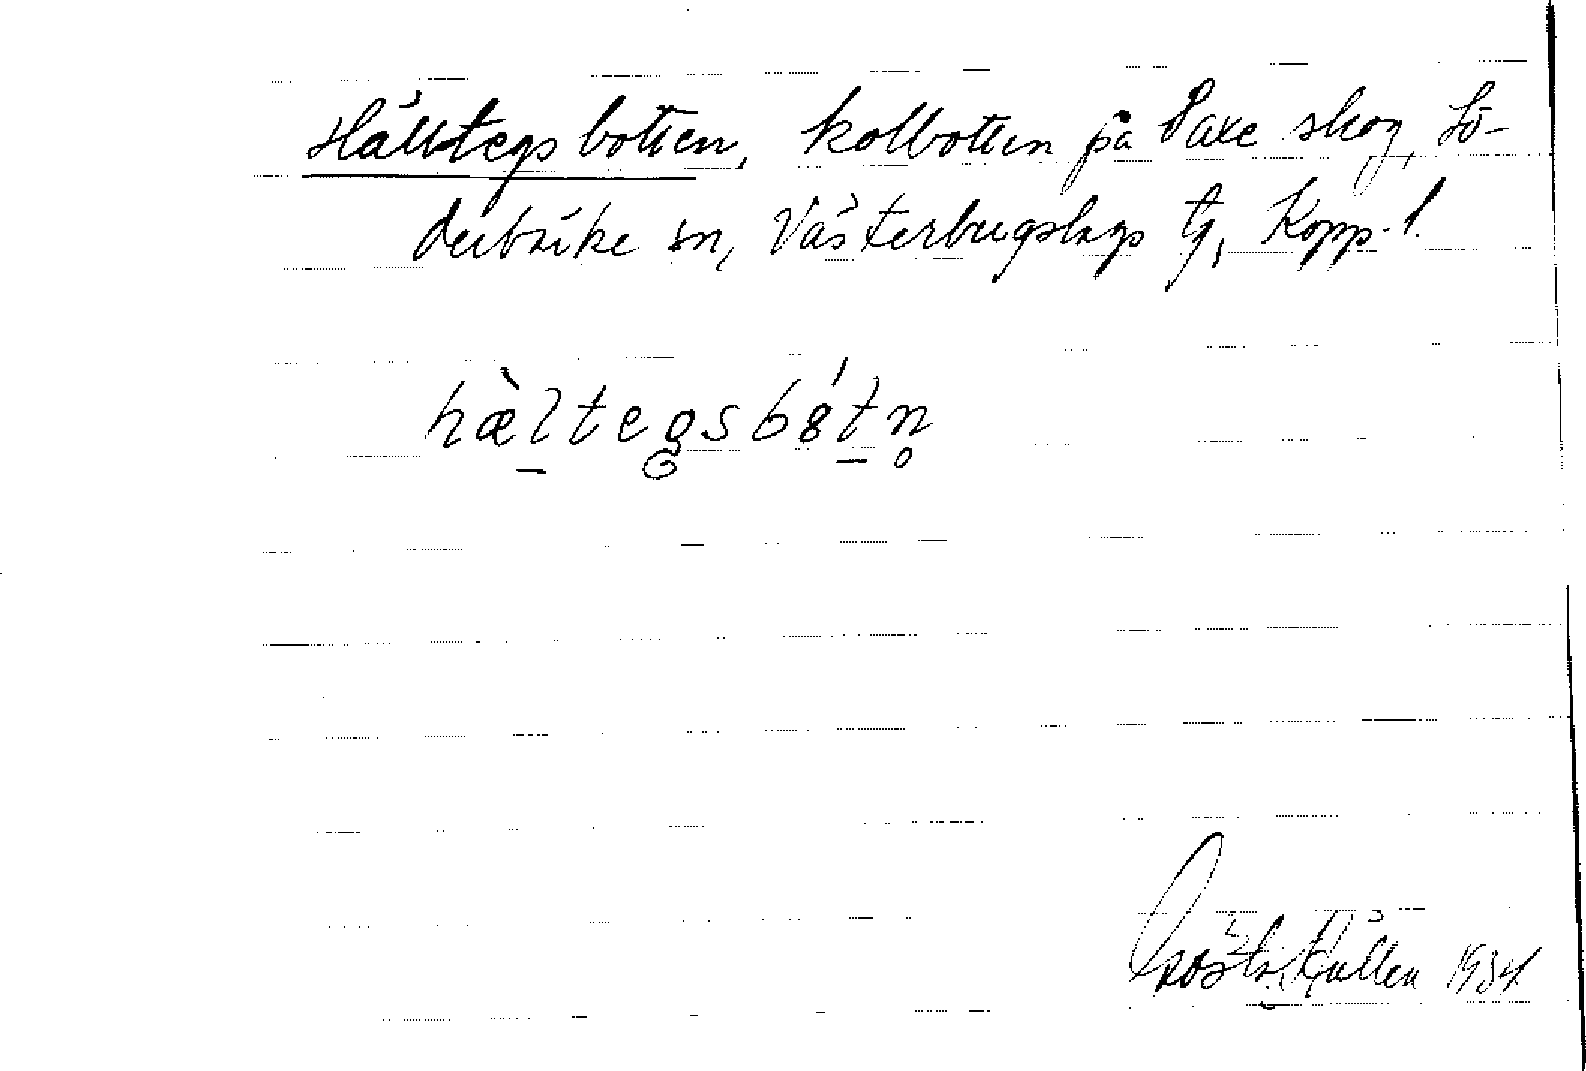 Hälltegsbotten, kolbotten på Saxe skog, Sö-
derbärke sn, Västerbergslags tg, Kopp. l.
hæ̀ltegsbótn̥
1934